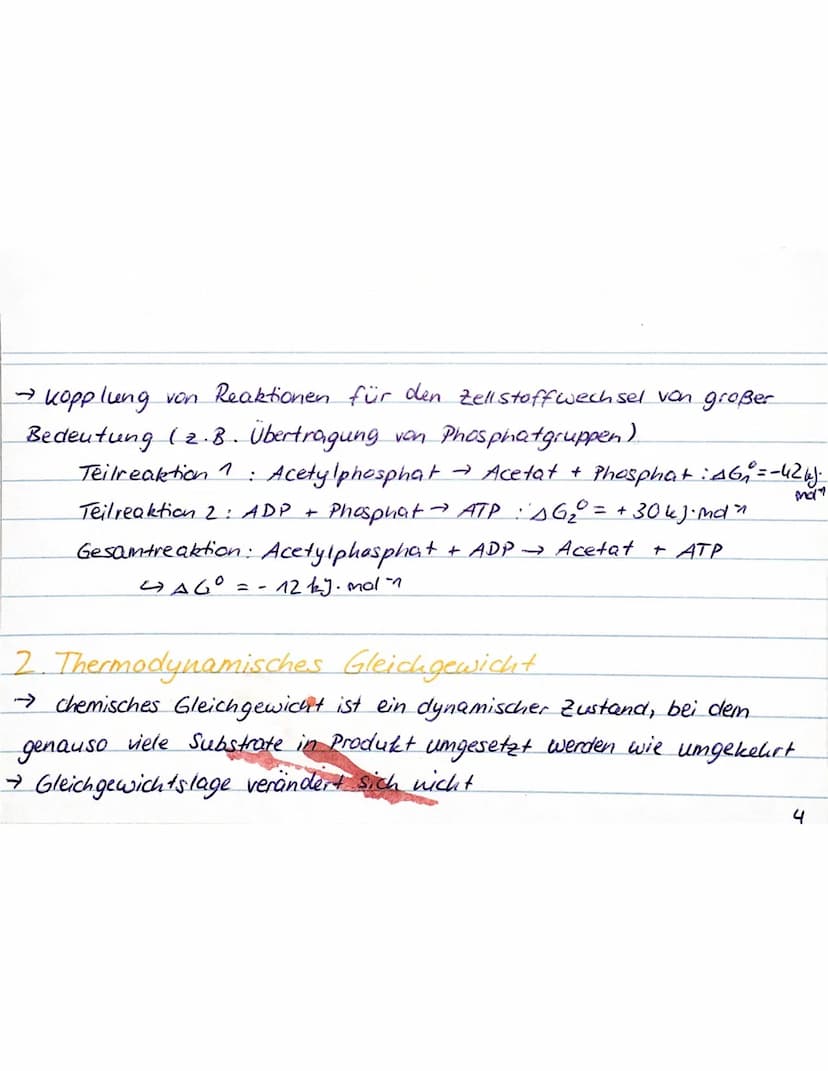 → Kopplung von Reaktionen für den Zellstoffwechsel von großer
Bedeutung (z.B. Übertragung von Phosphatgruppen)
Teilreaktion 1 : Acetylphosphat → Acetat + Phosphat : ΔG₁⁰ = -42 kJ·
mol⁻¹
Teilreaktion 2 : ADP + Phosphat → ATP : ΔG₂⁰ = + 30 kJ·mol⁻¹
Gesamtreaktion : Acetylphosphat + ADP → Acetat + ATP
↳ ΔG⁰ = - 12 kJ·mol⁻¹
2. Thermodynamisches Gleichgewicht
→ chemisches Gleichgewicht ist ein dynamischer Zustand, bei dem
genauso viele Substrate in Produkt umgesetzt werden wie umgekehrt
→ Gleichgewichtslage verändert sich nicht
4